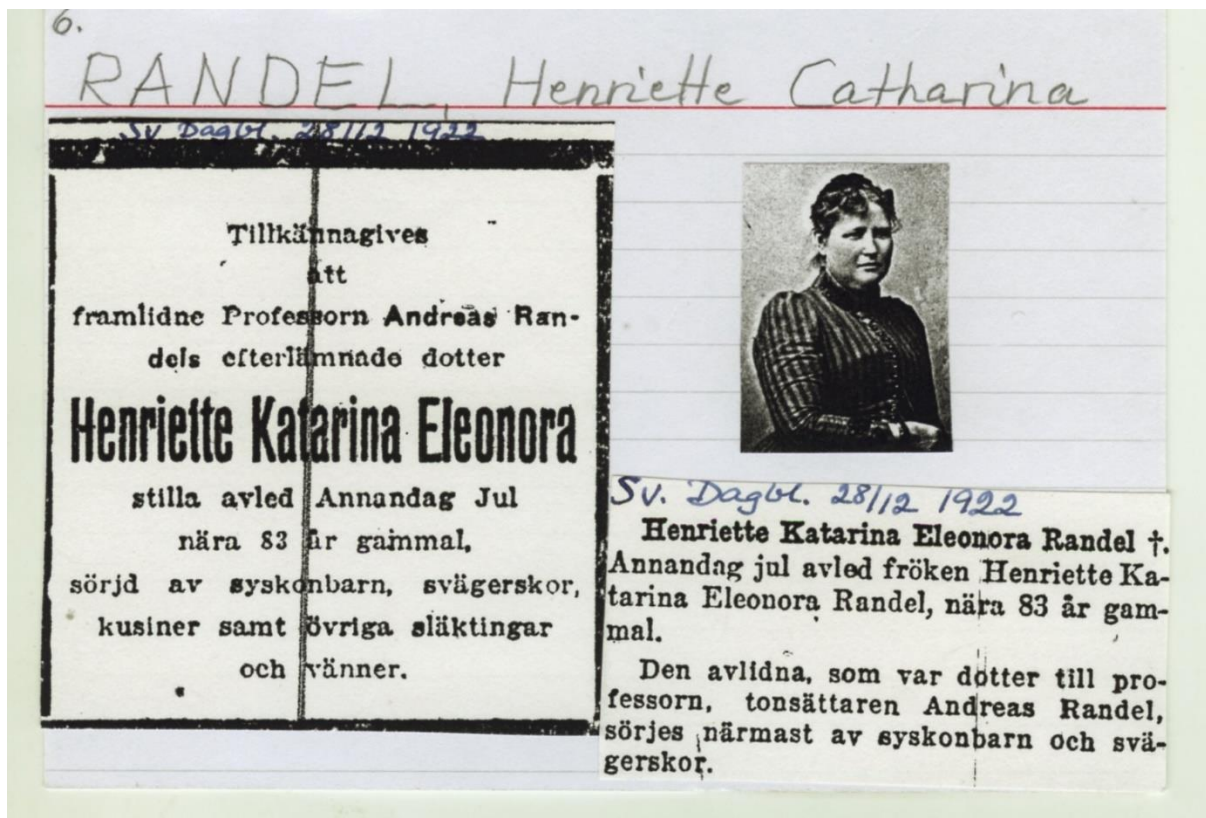 6.
RANDEL, Henriette Catharina
Sv. Dagbl. 28/12 1922
Tillkännagives
att
framlidne Professorn Andreas Ran-
dels efterlämnade dotter
Henriette Katarina Eleonora
stilla avled Annandag Jul
nära 83 år gammal,
sörjd av syskonbarn, svägerskor,
kusiner samt övriga släktingar
och vänner.
Sv. Dagbl. 28/12 1922
Henriette Katarina Eleonora Randel †.
Annandag jul avled fröken Henriette Ka-
tarina Eleonora Randel, nära 83 år gam-
mal.
Den avlidna, som var dotter till pro-
fessorn, tonsättaren Andreas Randel,
sörjes närmast av syskonbarn och svä-
gerskor.